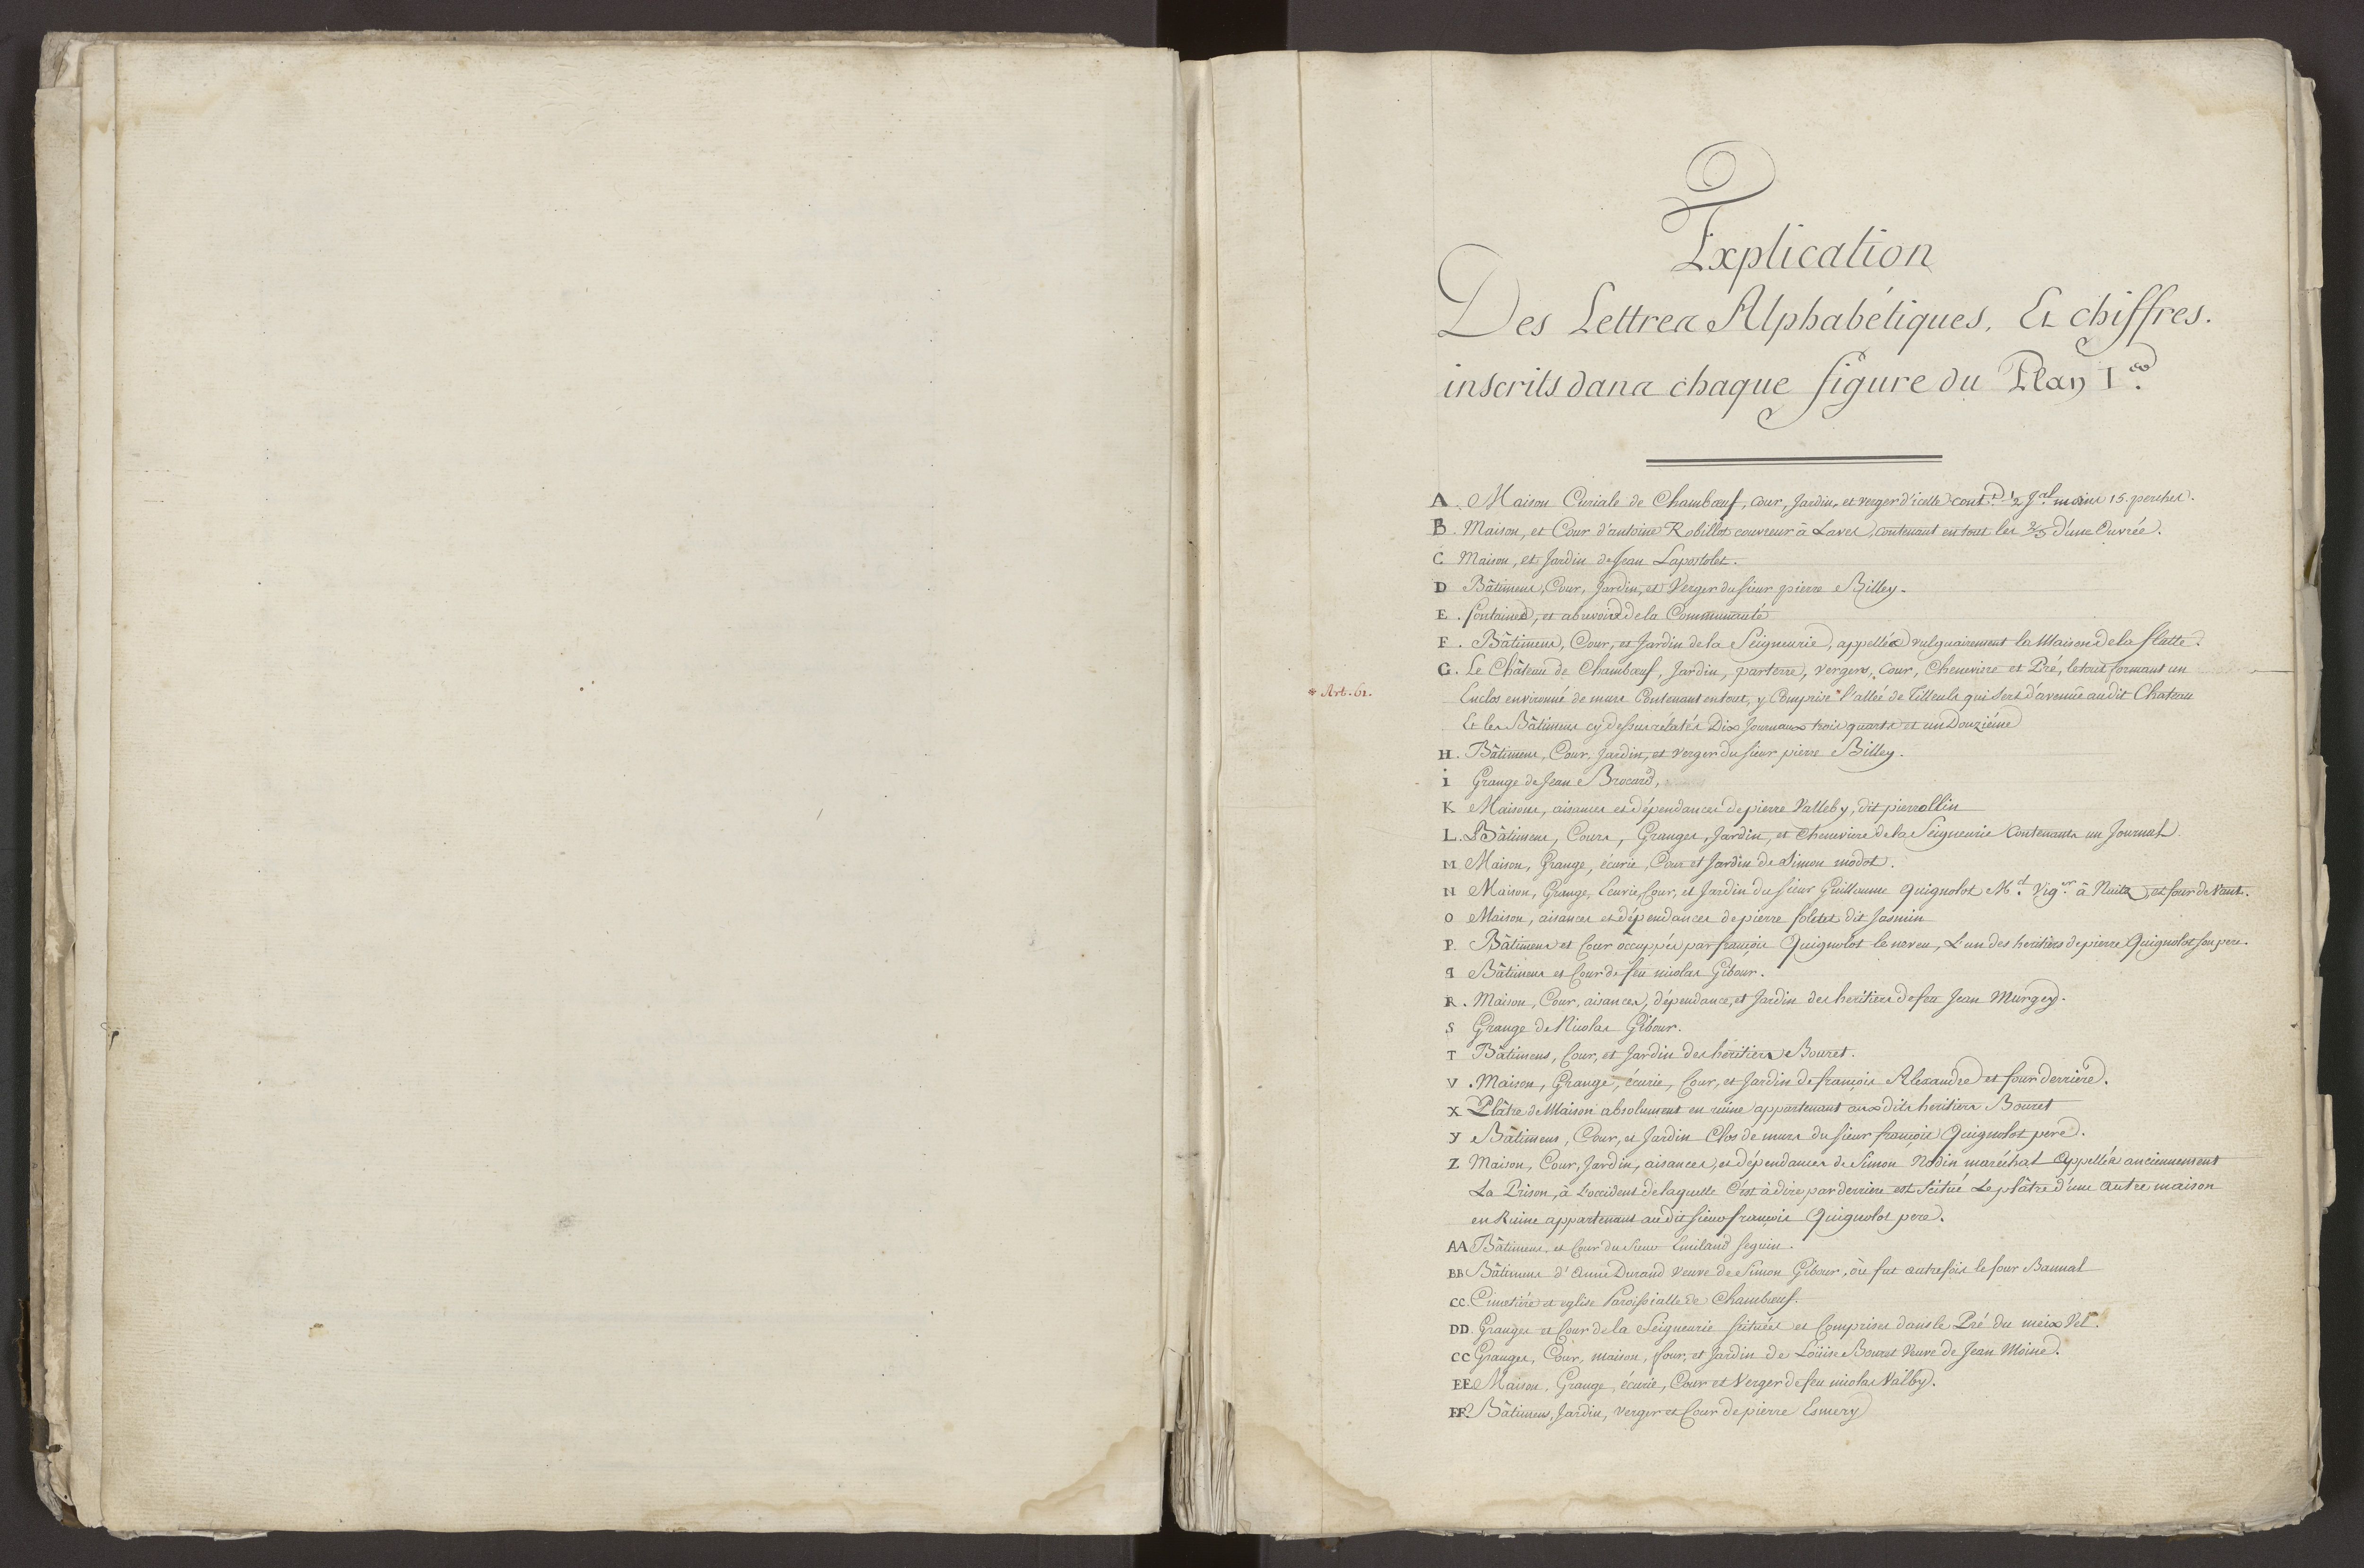 Explication
Des Lettres Alphabétiques, Et chiffres.
inscrits dans chaque figure du Plan I.er
A. Maison Curiale de Chambœuf, Cour, Jardin, et verger d'icelle cont.t 1/2 J.al moins 15. perches.
B. Maison, et Cour d'antoine Robillot couvreur à Lavet, contenant en tout les 2/3 d'une Ouvrée.
C Maison, et Jardin de Jean Lapostolet.
D Bâtimens, Cour, Jardin, et Verger du sieur pierre Billey.
E. fontaines, et abuvoirs de la Communauté
F. Bâtimens, Cour, et Jardin de la Seigneurie, appellés vulguairement la Maison de la flatte.
G. Le Château de Chambœuf, Jardin, parterre, vergers, Cour, Cheneviere et Pré, le tout formant un
* Art. 61.
Enclos environné de murs Contenant en tout, y Comprise * l'allée de Tilleuls qui sert d'avenüe audit Chateau
Et les Bâtimens cy dessus rélatés Dix Journaux trois quarts et un Douziéme
H. Bâtimens, Cour, Jardin, et verger du sieur pierre Billey.
i Grange de Jean Brocard,
K Maisons, aisances et dépendances de pierre Valleby, dit pierrollin
L. Bâtimens, Cours, Granges, Jardin, et Cheneviere de la Seigneurie Contenants un Journal
M Maison, Grange, écurie, Cour et Jardin de Simon modot.
N Maison, Grange, Ecurie, Cour, et Jardin du sieur Guillaume Quignolot M.d Vig.er à Nuits, et four devant.
O Maison, aisances et dépendances de pierre foletet dit Jasmin
P. Bâtimens et Cour occuppés par françois Quignolot le neveu, L'un des heritiers de pierre Quignolot son pere.
q Bâtimens et Cour de feu nicolas Gibour.
R. Maison, Cour, aisances, dépendance, et Jardin des heritiers de feu Jean Murgey.
S Grange de Nicolas Gibour.
T Bâtimens, Cour, et Jardin des heritiers Bouret.
V. Maison, Grange, écurie, Cour, et Jardin de françois Alexandre et four derriere.
X Plâtre de Maison absolument en ruine appartenant aux dits heritiers Bouret
Y Batimens, Cour, et Jardin Clos de murs du sieur françois Quignolot pere.
Z Maison, Cour, Jardin, aisances, et dépendances de Simon Nodin maréchal Appellée anciennement
La Prison, à L'occident de laquelle C'est à dire par derriere est scitué Le plâtre d'une autre maison
en Ruine appartenant au dit sieur françois Quignolot pere.
AA Bâtimens, et Cour du sieur Emiland Seguin.
BB Bâtimens d'Anne Durand Veuve de Simon Gibour, où fut autrefois le four Bannal
CC. Cimetiére et eglise Paroissialle de Chambœuf.
DD. Granges et Cour de la Seigneurie scituées et Comprises dans le Pré du meix Vel.
CC Granges, Cour, maison, four, et Jardin de Loüise Bouret Veuve de Jean Moine.
EE Maison, Grange, écurie, Cour et Verger de feu nicolas Valby.
FF. Bâtimens, Jardin, verger et Cour de pierre Esmery